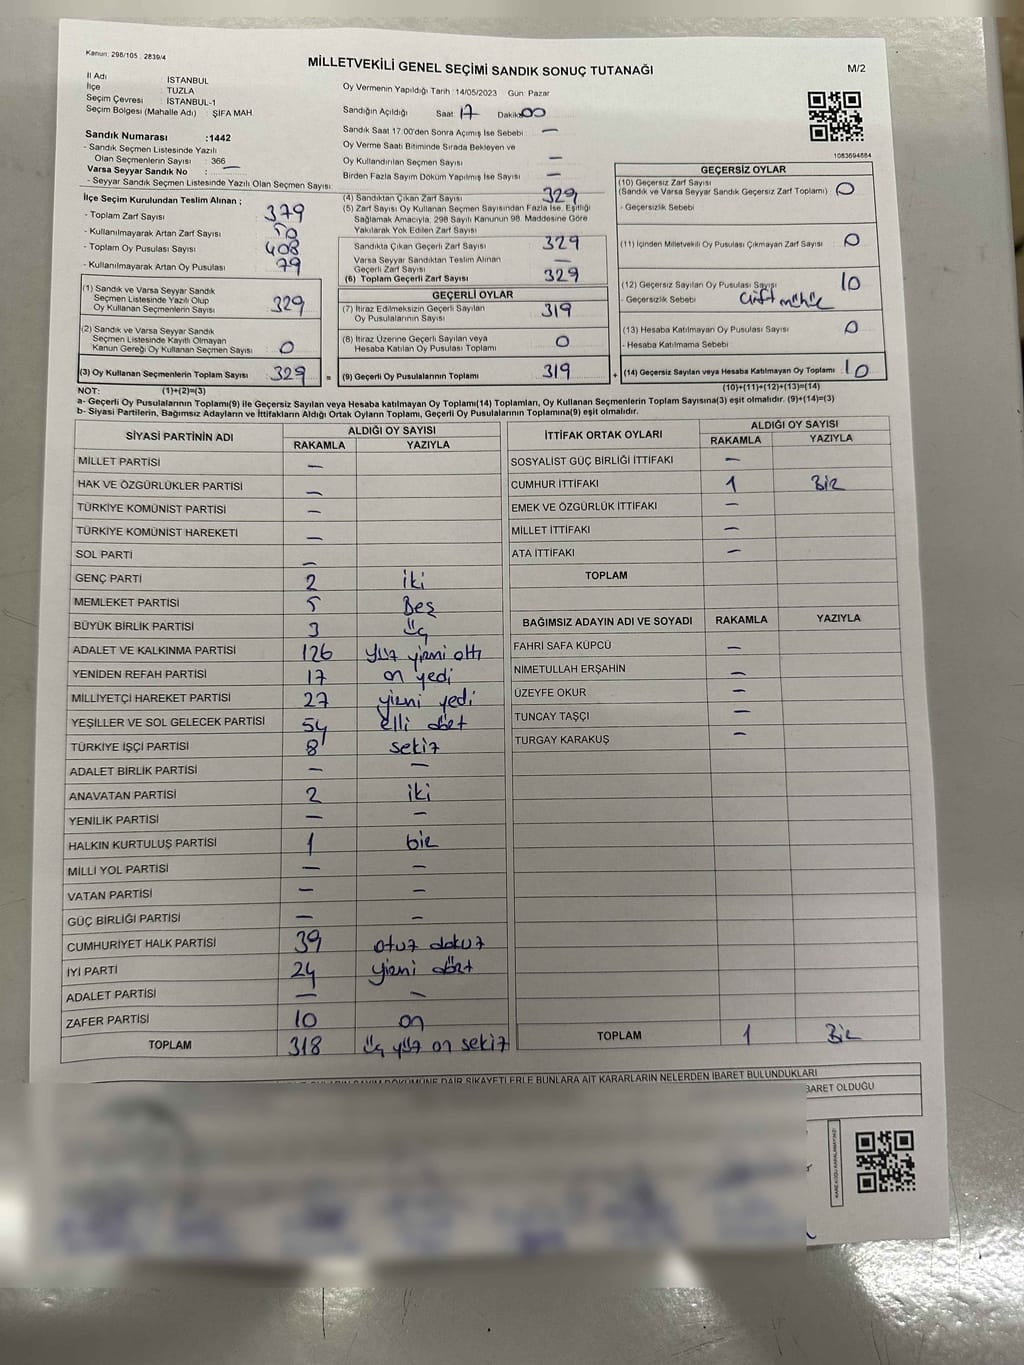 Kanun: 298/105 . 2839/4
MİLLETVEKİLİ GENEL SEÇİMİ SANDIK SONUÇ TUTANAĞI
M/2
İl Adı : İSTANBUL
İlçe : TUZLA
Seçim Çevresi : İSTANBUL-1
Seçim Bölgesi (Mahalle Adı) : ŞİFA MAH
Oy Vermenin Yapıldığı Tarih 14/05/2023 Gün: Pazar
Sandığın Açıldığı Saat 17 Dakika 00
Sandık Saat 17:00'den Sonra Açımış İse Sebebi : —
Oy Verme Saati Bitiminde Sırada Bekleyen ve
Oy Kullandırılan Seçmen Sayısı : —
Birden Fazla Sayım Döküm Yapılmış İse Sayısı : —
1083694884
Sandık Numarası :1442
- Sandık Seçmen Listesinde Yazılı
Olan Seçmenlerin Sayısı : 366
Varsa Seyyar Sandık No : —
- Seyyar Sandık Seçmen Listesinde Yazılı Olan Seçmen Sayısı:
İlçe Seçim Kurulundan Teslim Alınan ;
- Toplam Zarf Sayısı : 379
- Kullanılmayarak Artan Zarf Sayısı : 50
- Toplam Oy Pusulası Sayısı : 408
- Kullanılmayarak Artan Oy Pusulası : 79
(1) Sandık ve Varsa Seyyar Sandık
Seçmen Listesinde Yazılı Olup
Oy Kullanan Seçmenlerin Sayısı : 329
(2) Sandık ve Varsa Seyyar Sandık
Seçmen Listesinde Kayıtlı Olmayan
Kanun Gereği Oy Kullanan Seçmen Sayısı : 0
(3) Oy Kullanan Seçmenlerin Toplam Sayısı : 329
(4) Sandıktan Çıkan Zarf Sayısı : 329
(5) Zarf Sayısı Oy Kullanan Seçmen Sayısından Fazla İse, Eşitliği
Sağlamak Amacıyla, 298 Sayılı Kanunun 98. Maddesine Göre
Yakılarak Yok Edilen Zarf Sayısı :
Sandıkta Çıkan Geçerli Zarf Sayısı : 329
Varsa Seyyar Sandıktan Teslim Alınan
Geçerli Zarf Sayısı : —
(6) Toplam Geçerli Zarf Sayısı : 329
GEÇERLİ OYLAR
(7) İtiraz Edilmeksizin Geçerli Sayılan
Oy Pusulalarının Sayısı : 319
(8) İtiraz Üzerine Geçerli Sayılan veya
Hesaba Katılan Oy Pusulası Toplamı : 0
= (9) Geçerli Oy Pusulalarının Toplamı : 319
GEÇERSİZ OYLAR
(10) Geçersiz Zarf Sayısı
(Sandık ve Varsa Seyyar Sandık Geçersiz Zarf Toplamı) : 0
- Geçersizlik Sebebi :
(11) İçinden Milletvekili Oy Pusulası Çıkmayan Zarf Sayısı : 0
(12) Geçersiz Sayılan Oy Pusulası Sayısı : 10
- Geçersizlik Sebebi : Çift mühür
(13) Hesaba Katılmayan Oy Pusulası Sayısı : 0
- Hesaba Katılmama Sebebi :
+ (14) Geçersiz Sayılan veya Hesaba Katılmayan Oy Toplamı : 10
NOT: (1)+(2)=(3)
(10)+(11)+(12)+(13)=(14)
a- Geçerli Oy Pusulalarının Toplamı(9) ile Geçersiz Sayılan veya Hesaba katılmayan Oy Toplamı(14) Toplamları, Oy Kullanan Seçmenlerin Toplam Sayısına(3) eşit olmalıdır. (9)+(14)=(3)
b- Siyasi Partilerin, Bağımsız Adayların ve İttifakların Aldığı Ortak Oyların Toplamı, Geçerli Oy Pusulalarının Toplamına(9) eşit olmalıdır.
SİYASİ PARTİNİN ADI ALDIĞI OY SAYISI
RAKAMLA YAZIYLA
MİLLET PARTİSİ —
HAK VE ÖZGÜRLÜKLER PARTİSİ —
TÜRKİYE KOMÜNİST PARTİSİ —
TÜRKİYE KOMÜNİST HAREKETİ —
SOL PARTİ —
GENÇ PARTİ 2 iki
MEMLEKET PARTİSİ 5 Beş
BÜYÜK BİRLİK PARTİSİ 3 üç
ADALET VE KALKINMA PARTİSİ 126 yüz yirmi altı
YENİDEN REFAH PARTİSİ 17 on yedi
MİLLİYETÇİ HAREKET PARTİSİ 27 yirmi yedi
YEŞİLLER VE SOL GELECEK PARTİSİ 54 elli dört
TÜRKİYE İŞÇİ PARTİSİ 8 sekiz
ADALET BİRLİK PARTİSİ — —
ANAVATAN PARTİSİ 2 iki
YENİLİK PARTİSİ — —
HALKIN KURTULUŞ PARTİSİ 1 bir
MİLLİ YOL PARTİSİ — —
VATAN PARTİSİ — —
GÜÇ BİRLİĞİ PARTİSİ — —
CUMHURİYET HALK PARTİSİ 39 otuz dokuz
İYİ PARTİ 24 yirmi dört
ADALET PARTİSİ — —
ZAFER PARTİSİ 10 on
TOPLAM 318 üç yüz on sekiz
İTTİFAK ORTAK OYLARI ALDIĞI OY SAYISI
RAKAMLA YAZIYLA
SOSYALİST GÜÇ BİRLİĞİ İTTİFAKI —
CUMHUR İTTİFAKI 1 Bir
EMEK VE ÖZGÜRLÜK İTTİFAKI —
MİLLET İTTİFAKI —
ATA İTTİFAKI —
TOPLAM
BAĞIMSIZ ADAYIN ADI VE SOYADI RAKAMLA YAZIYLA
FAHRİ SAFA KÜPCÜ —
NİMETULLAH ERŞAHİN —
ÜZEYFE OKUR —
TUNCAY TAŞÇI —
TURGAY KARAKUŞ —
TOPLAM 1 Bir
DÖKÜMÜNE DAİR ŞİKAYETLERLE BUNLARA AİT KARARLARIN NELERDEN İBARET BULUNDUKLARI
İBARET OLDUĞU